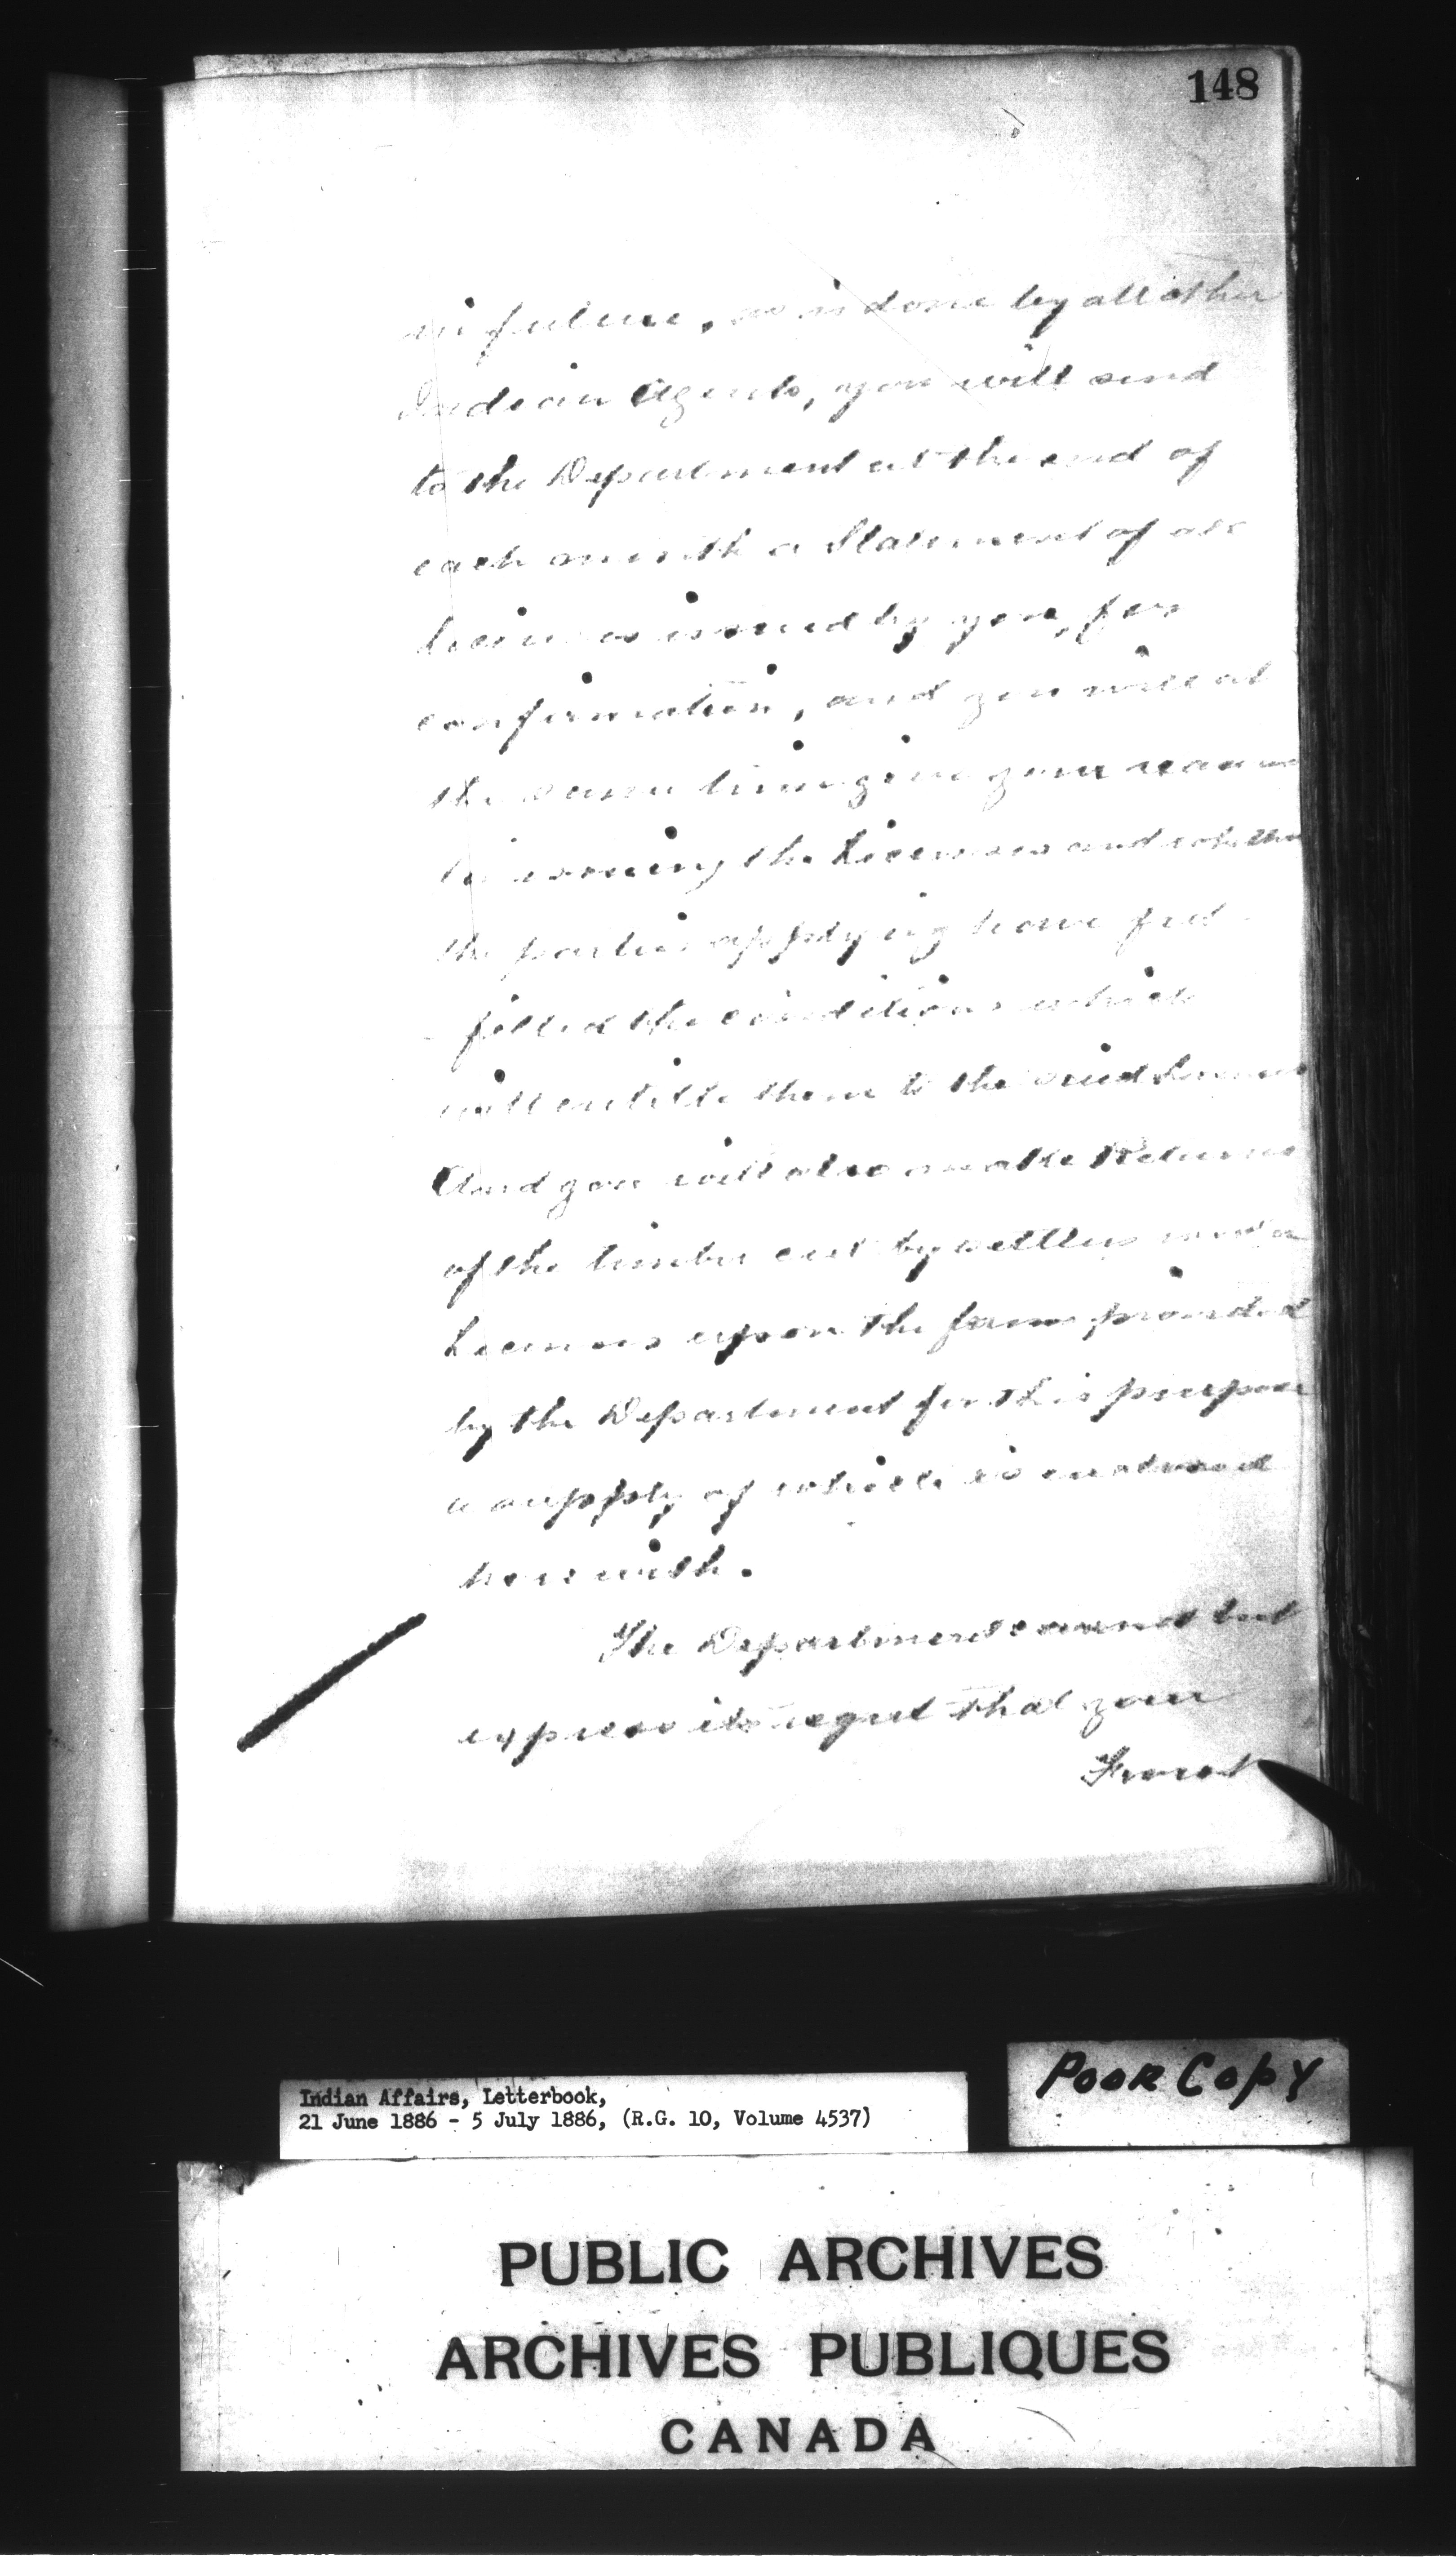 148
in future, as is done by all other
Indian Agents, you will send
to the Department at the end of
each month a Statement of all
Licenses issued by you, for
confirmation, and you will at
the same time give your reasons
for issuing the Licenses and whether
the parties applying have ful-
-filled the conditions which
will entitle them to the said Licenses
And you will also make Returns
of the timber cut by settlers under
Licenses upon the forms provided
by the Department for this purpose
a supply of which is enclosed
herewith.
The Department cannot but
express its regret that your
Forest
Indian Affairs, Letterbook,
21 June 1886 - 5 July 1886, (R.G. 10, Volume 4537)
POOR COPY
PUBLIC ARCHIVES
ARCHIVES PUBLIQUES
CANADA